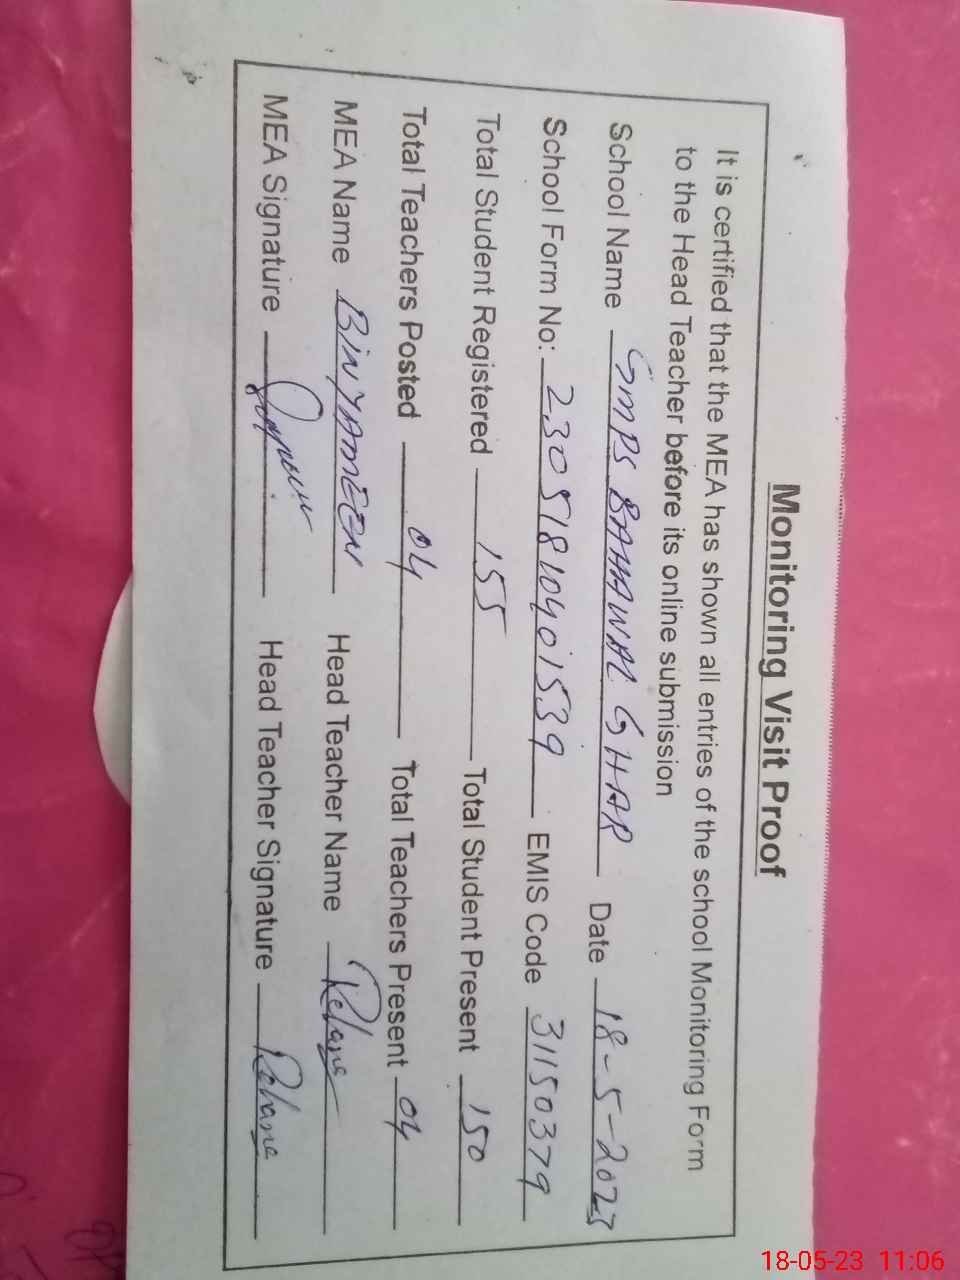 Monitoring Visit Proof
It is certified that the MEA has shown all entries of the school Monitoring Form
to the Head Teacher before its online submission
School Name GMPS BAHAWAL GHAR Date 18-5-2023
School Form No: 23051810401539 EMIS Code 31150379
Total Student Registered 155 Total Student Present 150
Total Teachers Posted 04 Total Teachers Present 04
MEA Name BINYAMEEN Head Teacher Name Rehana
MEA Signature Head Teacher Signature Rehana
18-05-23 11:06